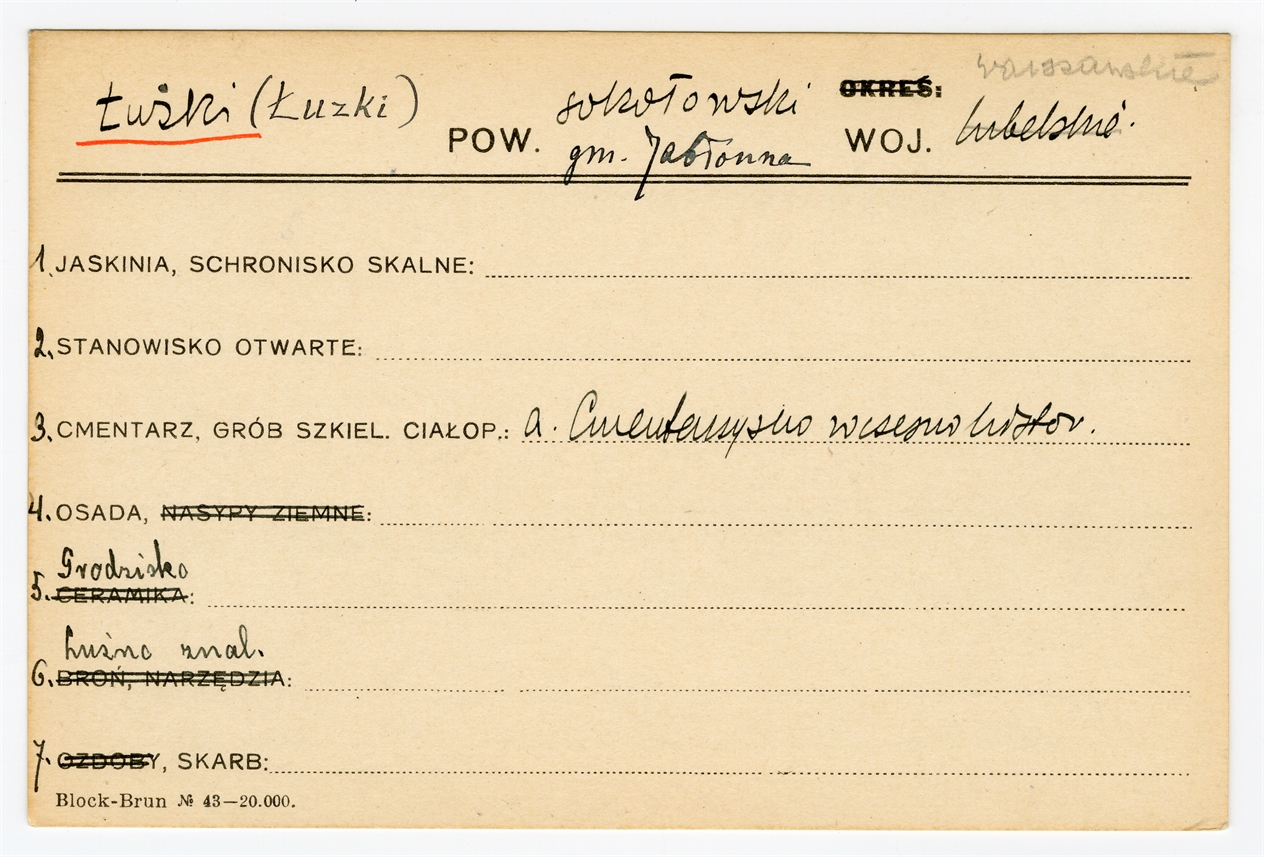 Łużki (Łuzki) POW. sokołowski gm. Jabłonna OKREŚ: WOJ. warszawskie lubelskie.
1. JASKINIA, SCHRONISKO SKALNE:
2. STANOWISKO OTWARTE:
3. CMENTARZ, GRÓB SZKIEL. CIAŁOP.: a. Cmentarzysko wczesnohistor.
4. OSADA, NASYPY ZIEMNE:
Grodzisko
5. CERAMIKA:
Luźne znal.
6. BROŃ, NARZĘDZIA:
7. OZDOBY, SKARB:
Block-Brun № 43—20.000.